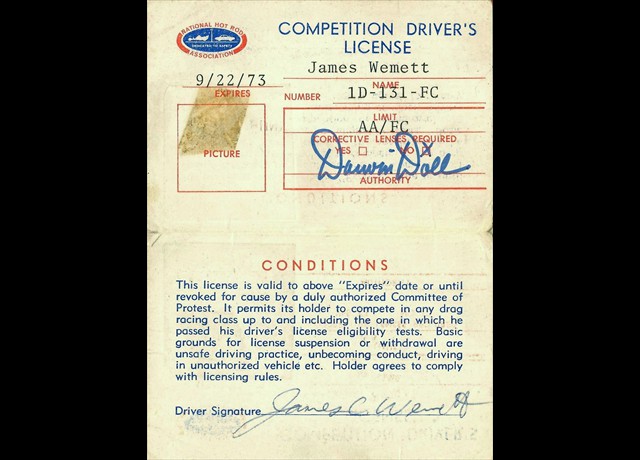 NATIONAL HOT ROD
DEDICATED TO SAFETY
ASSOCIATION
COMPETITION DRIVER'S
LICENSE
James Wemett
NAME
9/22/73
EXPIRES
NUMBER 1D-131-FC
LIMIT
AA/FC
CORRECTIVE LENSES REQUIRED
YES ☐ NO ☒
PICTURE
Darwin Doll
AUTHORITY
CONDITIONS
This license is valid to above "Expires" date or until
revoked for cause by a duly authorized Committee of
Protest. It permits its holder to compete in any drag
racing class up to and including the one in which he
passed his driver's license eligibility tests. Basic
grounds for license suspension or withdrawal are
unsafe driving practice, unbecoming conduct, driving
in unauthorized vehicle etc. Holder agrees to comply
with licensing rules.
Driver Signature James C Wemett